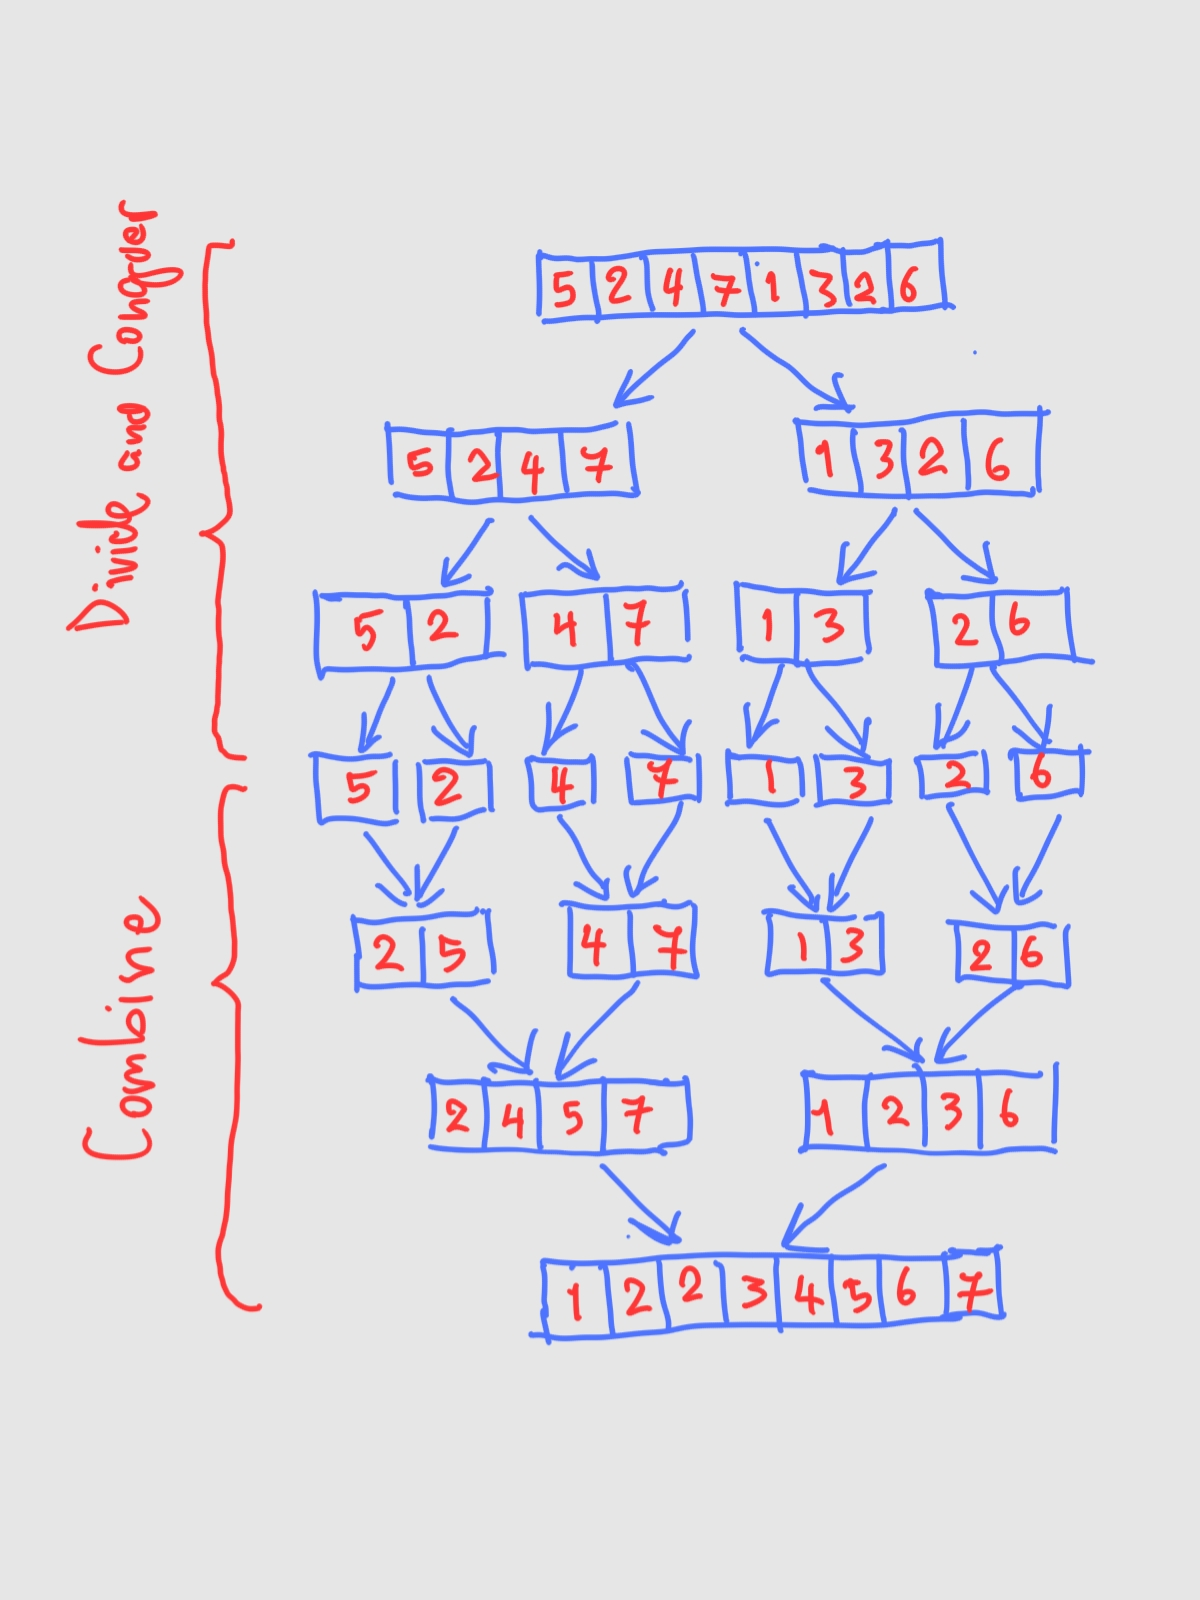 Divide and Conquer
5 2 4 7 1 3 2 6
5 2 4 7 1 3 2 6
5 2 4 7 1 3 2 6
5 2 4 7 1 3 2 6
Combine
2 5 4 7 1 3 2 6
2 4 5 7 1 2 3 6
1 2 2 3 4 5 6 7